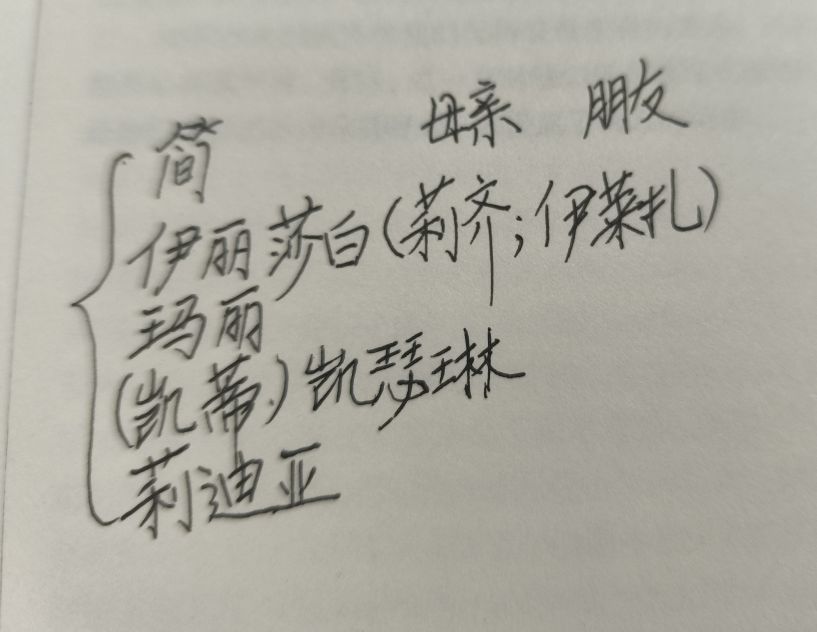 母亲 朋友
简
伊丽莎白(莉齐;伊莱扎)
玛丽
(凯蒂)凯瑟琳
莉迪亚